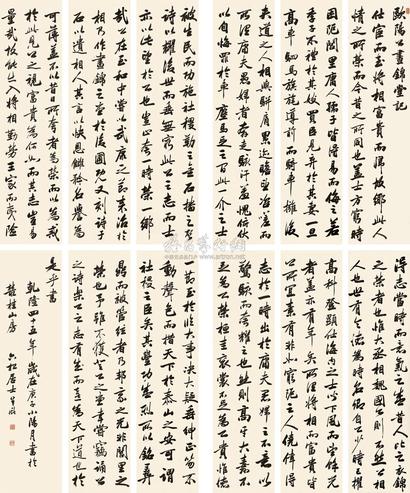 歐陽公晝錦堂記
仕宦而至將相富貴而歸故鄉此人
情之所榮而今昔之所同也蓋士方窮時
困阨閭里庸人孺子皆得易而侮之若
季子不禮於其嫂買臣見棄於其妻一旦
高車駟馬旗旄導前而騎卒擁後
夾道之人相與駢肩累迹瞻望咨嗟而
所謂庸夫愚婦者奔走駭汗羞愧俯伏
以自悔罪於車塵馬足之間此一介之士
得志當時意氣之盛昔人比之衣錦
之榮者也惟大丞相魏國公則不然公相人
也世有令德為時名卿自公少時已擢
高科登顯仕海內之士聞下風而望餘光
者蓋亦有年矣所謂將相而富貴皆
公所宜素有非如窮阨之人僥倖得
志於一時出於庸夫愚婦之不意以
驚駭而夸耀之也然則高牙大纛不
足為公榮桓圭袞冕不足為公貴惟德
被生民而功施社稷勒之金石播之聲
詩以耀後世而垂無窮此公之志而士
亦以此望於公也豈止夸一時榮一鄉
哉公在至和中嘗以武康之節來治於
相乃作晝錦之堂於後圃既又刻詩于
石以遺相人其言以快恩讎矜名譽為
可薄蓋不以昔人所夸者為榮而以為戒
於此見公之視富貴為何如而其志豈易
量哉故能出入將相勤勞王家而夷險
一節至於臨大事決大議垂紳正笏不
動聲色而措天下於泰山之安可謂
社稷之臣矣其豐功盛烈所以銘彝
鼎而被絃歌者乃邦家之光非閭里之
榮也予雖不獲登公之堂幸嘗竊誦公
之詩樂公之志有成而喜為天下道也於
是乎書
乾隆四十五年歲在庚子小陽月書於
桂山房 六松居士